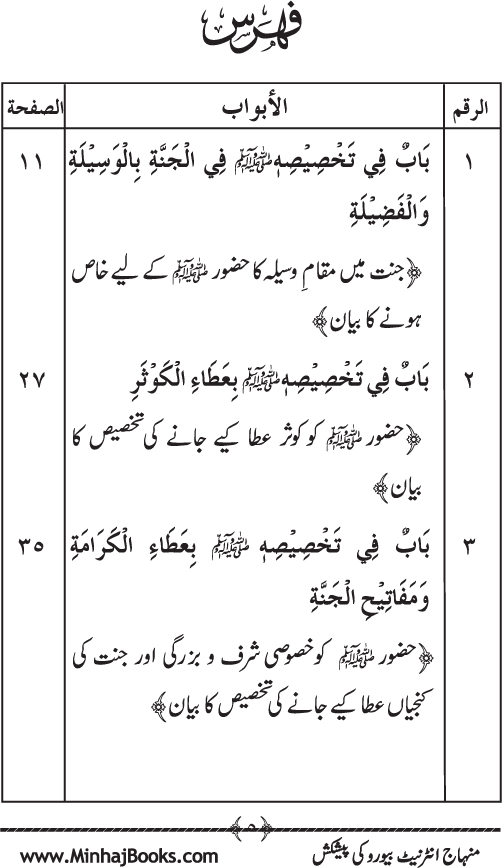 فهرس
الرقم الأبواب الصفحة
١ بَابٌ فِي تَخْصِيْصِهٖ ﷺ فِي الْجَنَّةِ بِالْوَسِيْلَةِ ١١
وَالْفَضِيْلَةِ
﴿جنت میں مقامِ وسیلہ کا حضور ﷺ کے لیے خاص
ہونے کا بیان﴾
٢ بَابٌ فِي تَخْصِيْصِهٖ ﷺ بِعَطَاءِ الْكَوْثَرِ ٢٧
﴿حضور ﷺ کو کوثر عطا کیے جانے کی تخصیص کا
بیان﴾
٣ بَابٌ فِي تَخْصِيْصِهٖ ﷺ بِعَطَاءِ الْكَرَامَةِ ٣٥
وَمَفَاتِيْحِ الْجَنَّةِ
﴿حضور ﷺ کو خصوصی شرف و بزرگی اور جنت کی
کنجیاں عطا کیے جانے کی تخصیص کا بیان﴾
﴿٥﴾
منہاج انٹرنیٹ بیورو کی پیشکش www.MinhajBooks.com